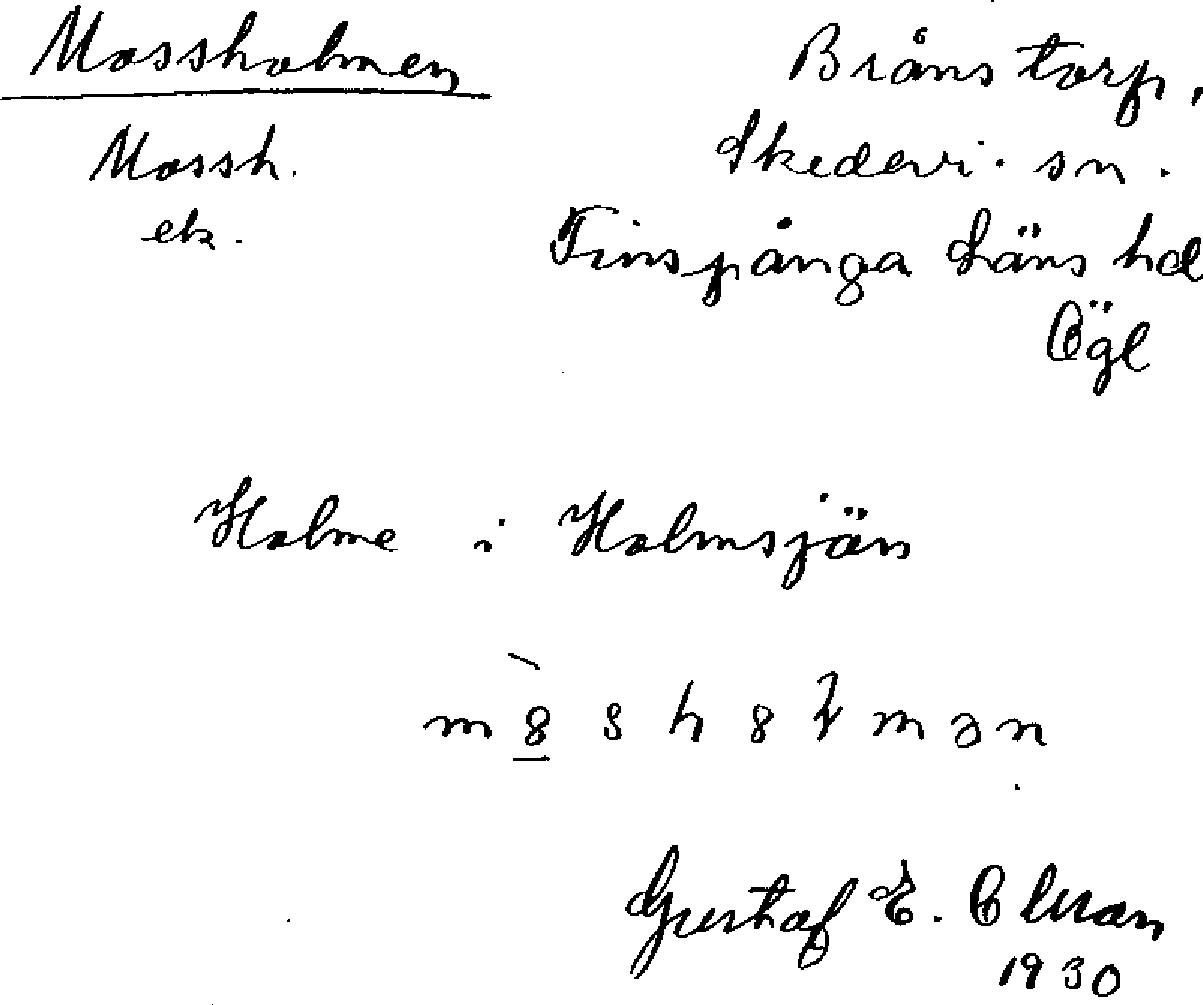 Mossholmen
Mossh.
ek.
Brånstorp,
Skedevi. sn.
Finspånga Läns hd
Ögl
Holme i Holmsjön
Gustaf E. Olsson
1930